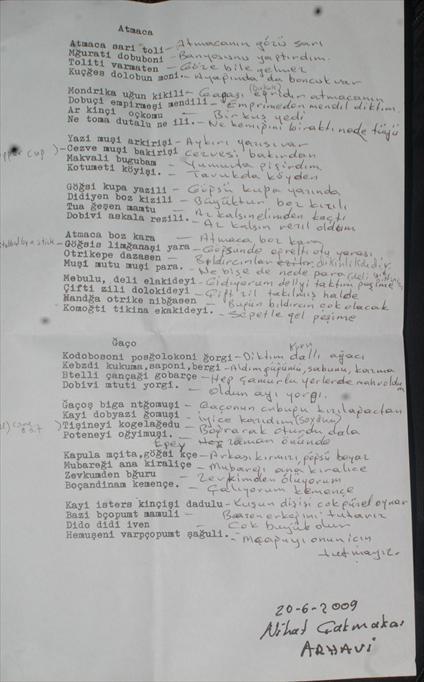 Atmaca
Atmaca sari toli - Atmacanın gözü sarı
Mğurati dobuboni - Banyosunu yaptırdım.
Toliti varmaten - Göze bile gelmez
Kuçğes dolobun moni. - Ayağında da boncuk var
Mondrika uğun kikili - Gagası eğridir atmacanın
Dobuçi empirmeşi mendili - Emprimeden mendil diktim.
Ar kinçi oçkomu - Bir kuş yedi
Ne toma dutalu ne ili. - Ne kemiğini bıraktı nede tüyü
Yazi muşi arkirişi - Aykırı yazısı var
Cezve muşi bakirişi - Cezvesi bakırdan
Makvali bugubam - Yumurta pişirdim
Kotumeti köyişi. - Tavukda köyden
Göğsi kupa yazili - Göğsü kupa yazında
Didiyen boz kizili - Büyüktür, boz kızılı
Tua geşen mamtu - Az kalsın elimden kaçtı
Dobivi askala rezili. - Az kalsın rezil oldum
Atmaca boz kara - Atmaca boz kara
Göğsis limğanaşi yara - Göğsünde eğrelti otu yarası
Otrikepe dazasen -
Muşi mutu muşi para. - Ne bişe de nede para
Mebulu, deli elakideyi - Gidiyorum deliyi taktım peşime
Çifti zili dolokideyi - Çift zil takılmış halde
Mandğa otrike nibğasen - Bugün bıldırcın çok olacak
Komoğti tikina ekakideyi. - Sepetle gel peşime
Ğaço
Kodobosoni posğolokoni ğorgi - Diktim dallı ağacı
Kebzdi kukuma, saponi, bergi - Aldım güğümü, sabunu, kazma
Stelli çançaği gobarçe - Hep çamurlu yerlerde mahvoldum
Dobivi mtuti yorgi. - Oldun ayı yorgi.
Ğaçoş biga ntğomuşi - Gaçonun çubuğu kızılağaçtan
Kayi dobyazi ğomuşi - İyice kazıdım (Soydum)
Tişineyi kogelağedu - Bağırarak oturdu dala
Poteneyi oğyimuşi. - Her zaman önünde
Kapula mçita, göğsi kçe - Arkası kırmızı, göğsü beyaz
Mubareği ana kiraliçe - Mubareği ana kraliçe
Zevkumden bğuru - Zevkimden ölüyorum
Boçandinam kemençe. - Çalıyorum kemençe
Kayi isters kinçişi dadulu - Kuşun dişisi çok güzel oynar
Bazi bçopumt mamuli - Bazen erkeğini tutarız
Dido didi iven - Çok büyük olur
Hemuşeni varpçopumt şağuli. - Maçapuyı onun için
tutmayız.
20-6-2009
Nihat Çakmakas
ARHAVİ